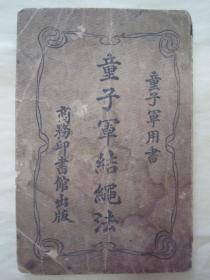 童子軍用書
童子軍結繩法
商務印書館出版